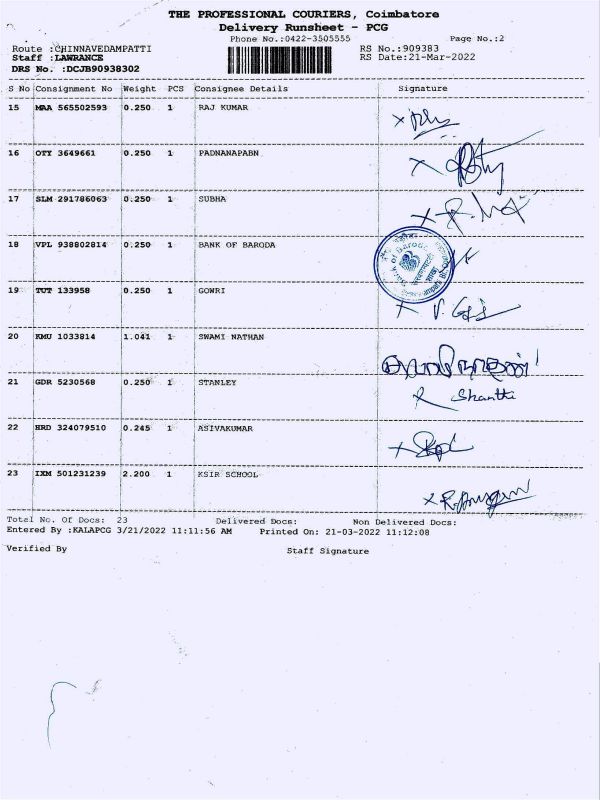 THE PROFESSIONAL COURIERS, Coimbatore
Delivery Runsheet - PCG
Phone No.:0422-3505555 Page No.:2
Route :CHINNAVEDAMPATTI RS No.:909383
Staff :LAWRANCE RS Date:21-Mar-2022
DRS No. :DCJB90938302
S No Consignment No Weight PCS Consignee Details Signature
15 MAA 565502593 0.250 1 RAJ KUMAR
16 OTY 3649661 0.250 1 PADNANAPABN
17 SLM 291786063 0.250 1 SUBHA
18 VPL 938802814 0.250 1 BANK OF BARODA
Bank of Baroda
19 TUT 133958 0.250 1 GOWRI
20 KMU 1033814 1.041 1 SWAMI NATHAN
21 GDR 5230568 0.250 1 STANLEY
Shanthi
22 HRD 324079510 0.245 1 ASIVAKUMAR
23 IXM 501231239 2.200 1 KSIR SCHOOL
Total No. Of Docs: 23 Delivered Docs: Non Delivered Docs:
Entered By :KALAPCG 3/21/2022 11:11:56 AM Printed On: 21-03-2022 11:12:08
Verified By Staff Signature